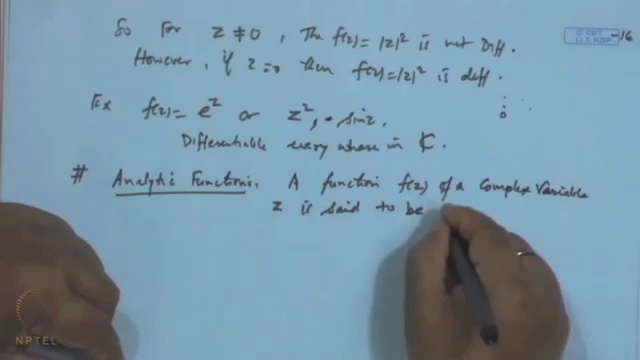 So For z ≠ 0, The f(z) = |z|² is not Diff.
However, if z = 0 then f(z) = |z|² is diff.
Ex f(z) = e^z or z², sin z,
Differentiable every where in ℂ.
# Analytic Functions. A function f(z) of a Complex Variable
z is said to be
© CET
I.I.T. KGP
-16
NPTEL